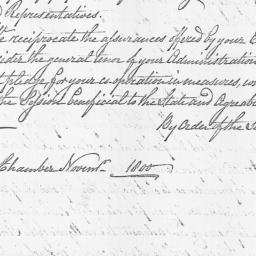 Representatives.
reciprocate the assurances offered by your
the general tenor of your Administration
pledge for your co-operation in measures,
the Session beneficial to the State and
By Order of the
Chamber Novemr. 1800